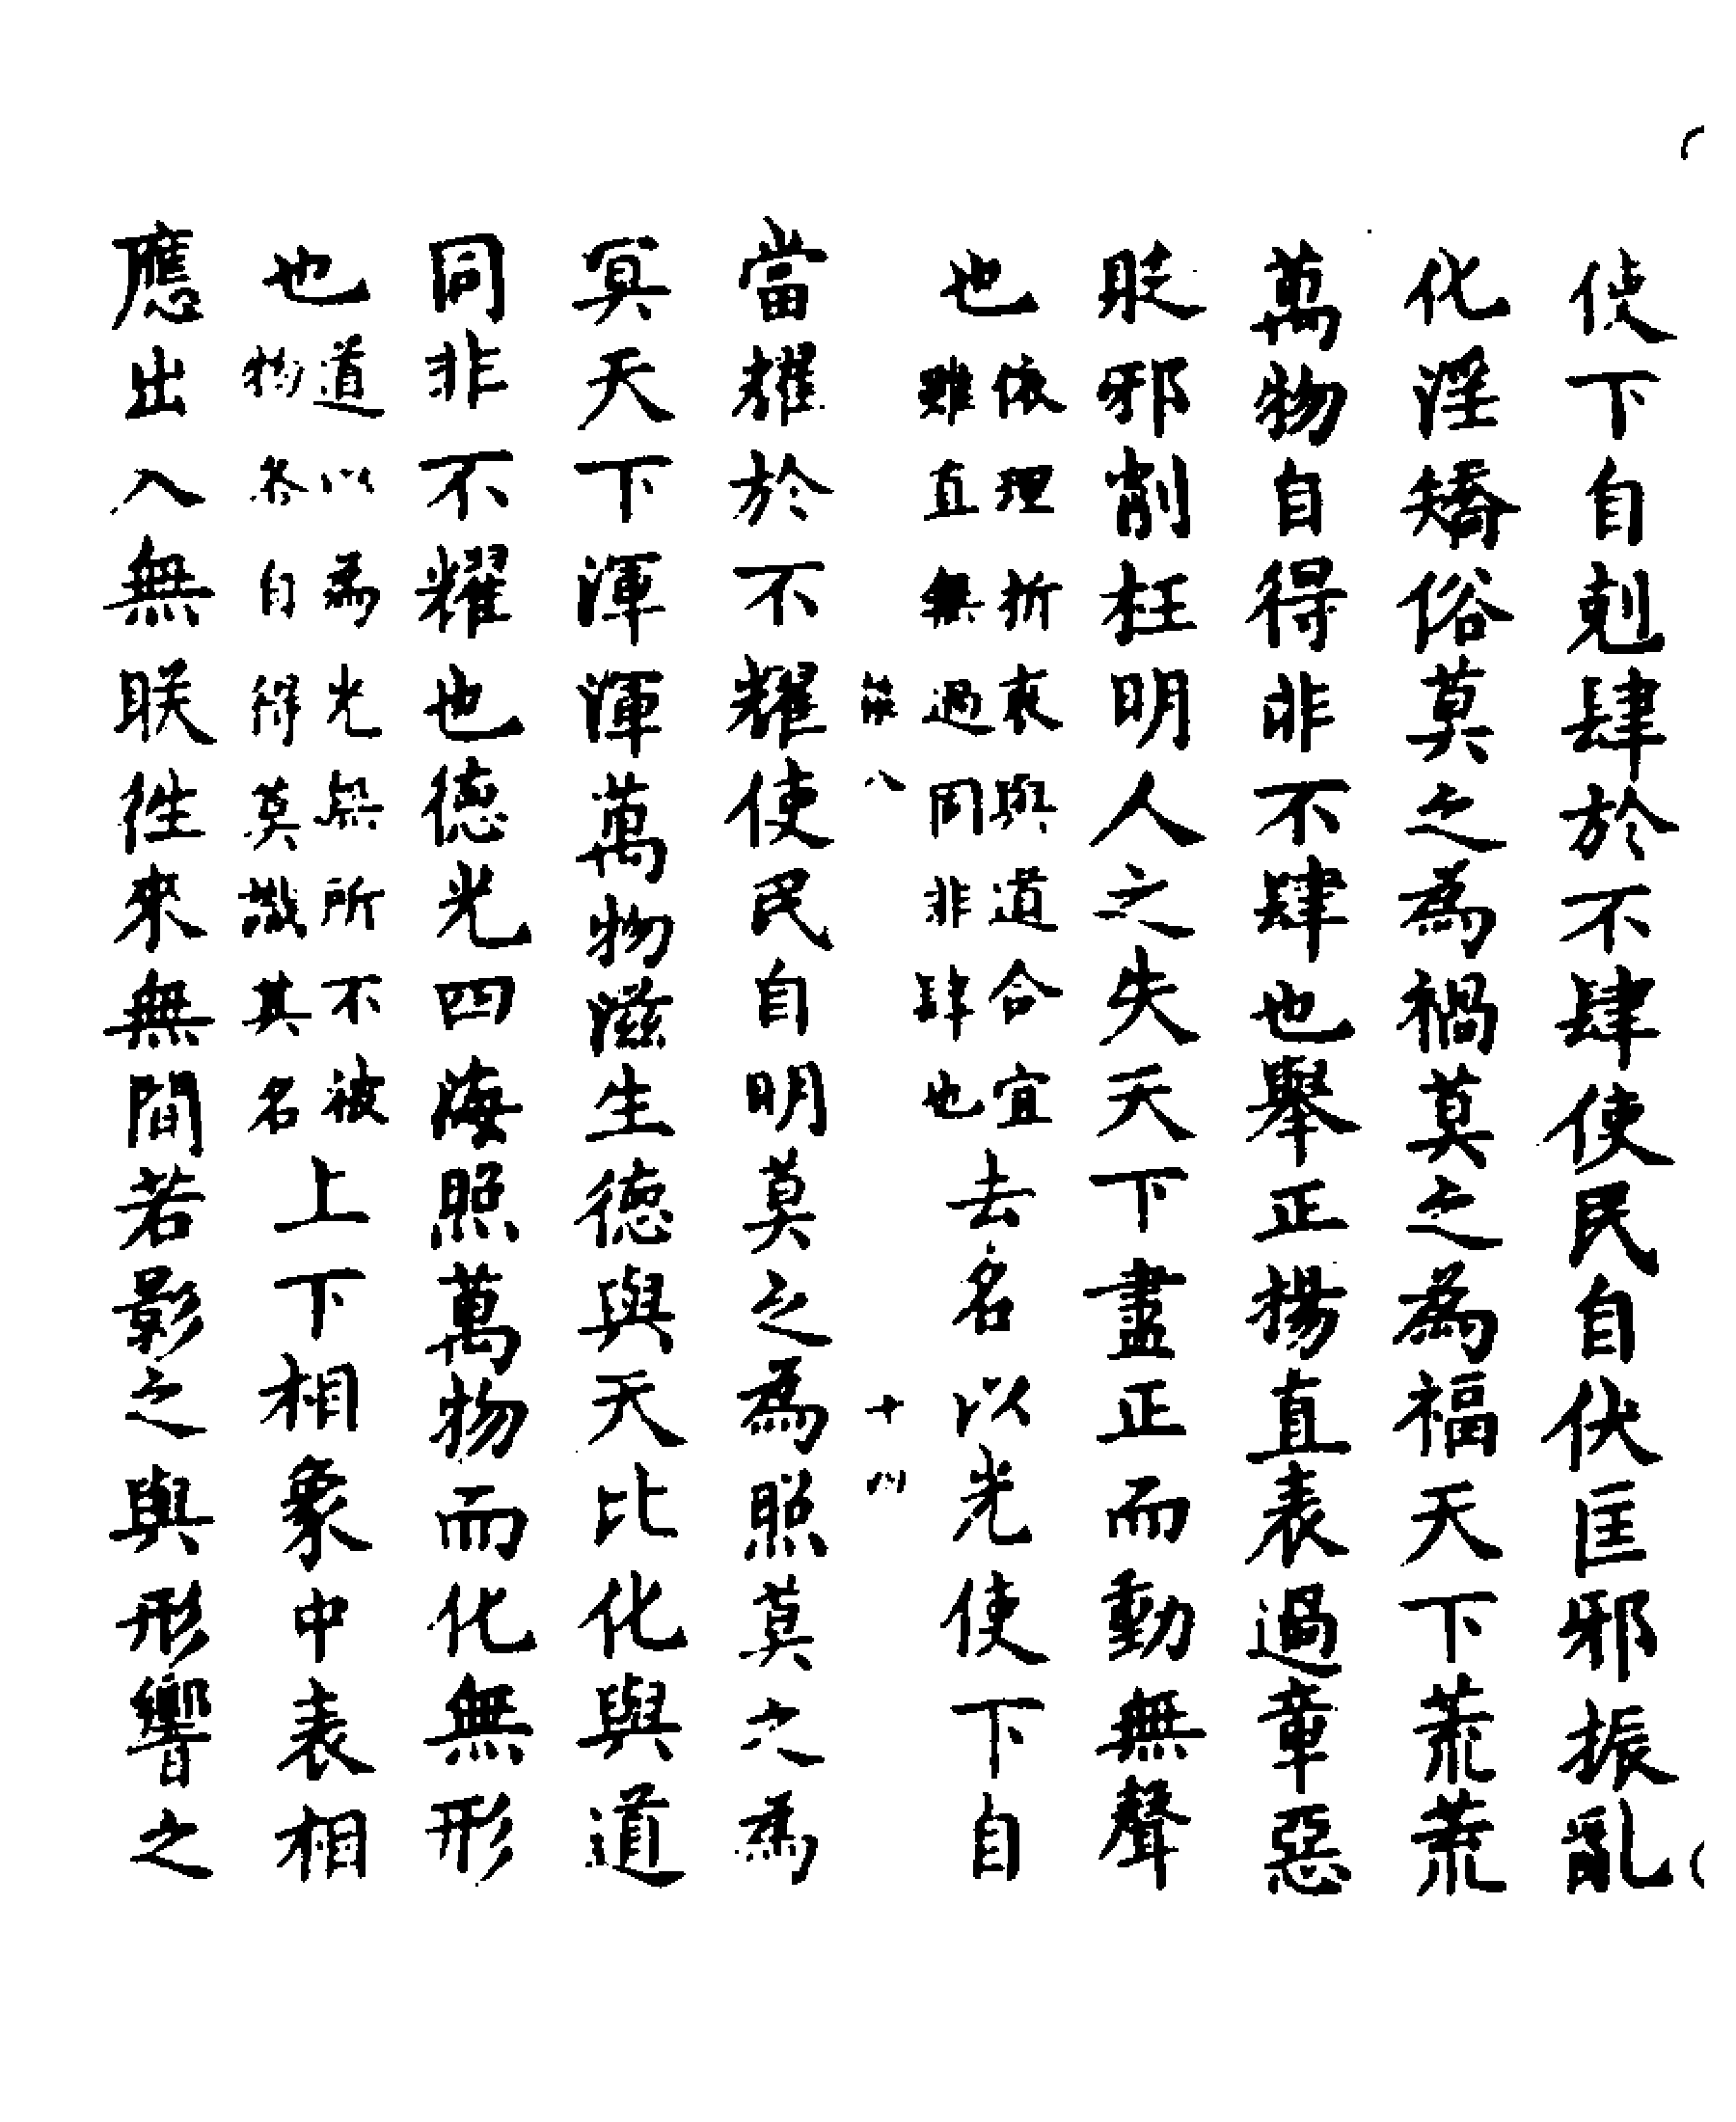 使下自剋肆於不肆使民自伏匡邪振亂
化淫矯俗莫之為禍莫之為福天下荒荒
萬物自得非不肆也舉正揚直表過章惡
貶邪削枉明人之失天下盡正而動無聲
也依理折衷與道合宜
雖直無過同非肆也去名以光使下自
八 十
當耀於不耀使民自明莫之為照莫之為
冥天下渾渾萬物滋生德與天比化與道
同非不耀也德光四海照萬物而化無形
也道以為光無所不被
物各自得莫識其名上下相象中表相
應出入無朕往來無間若影之與形響之